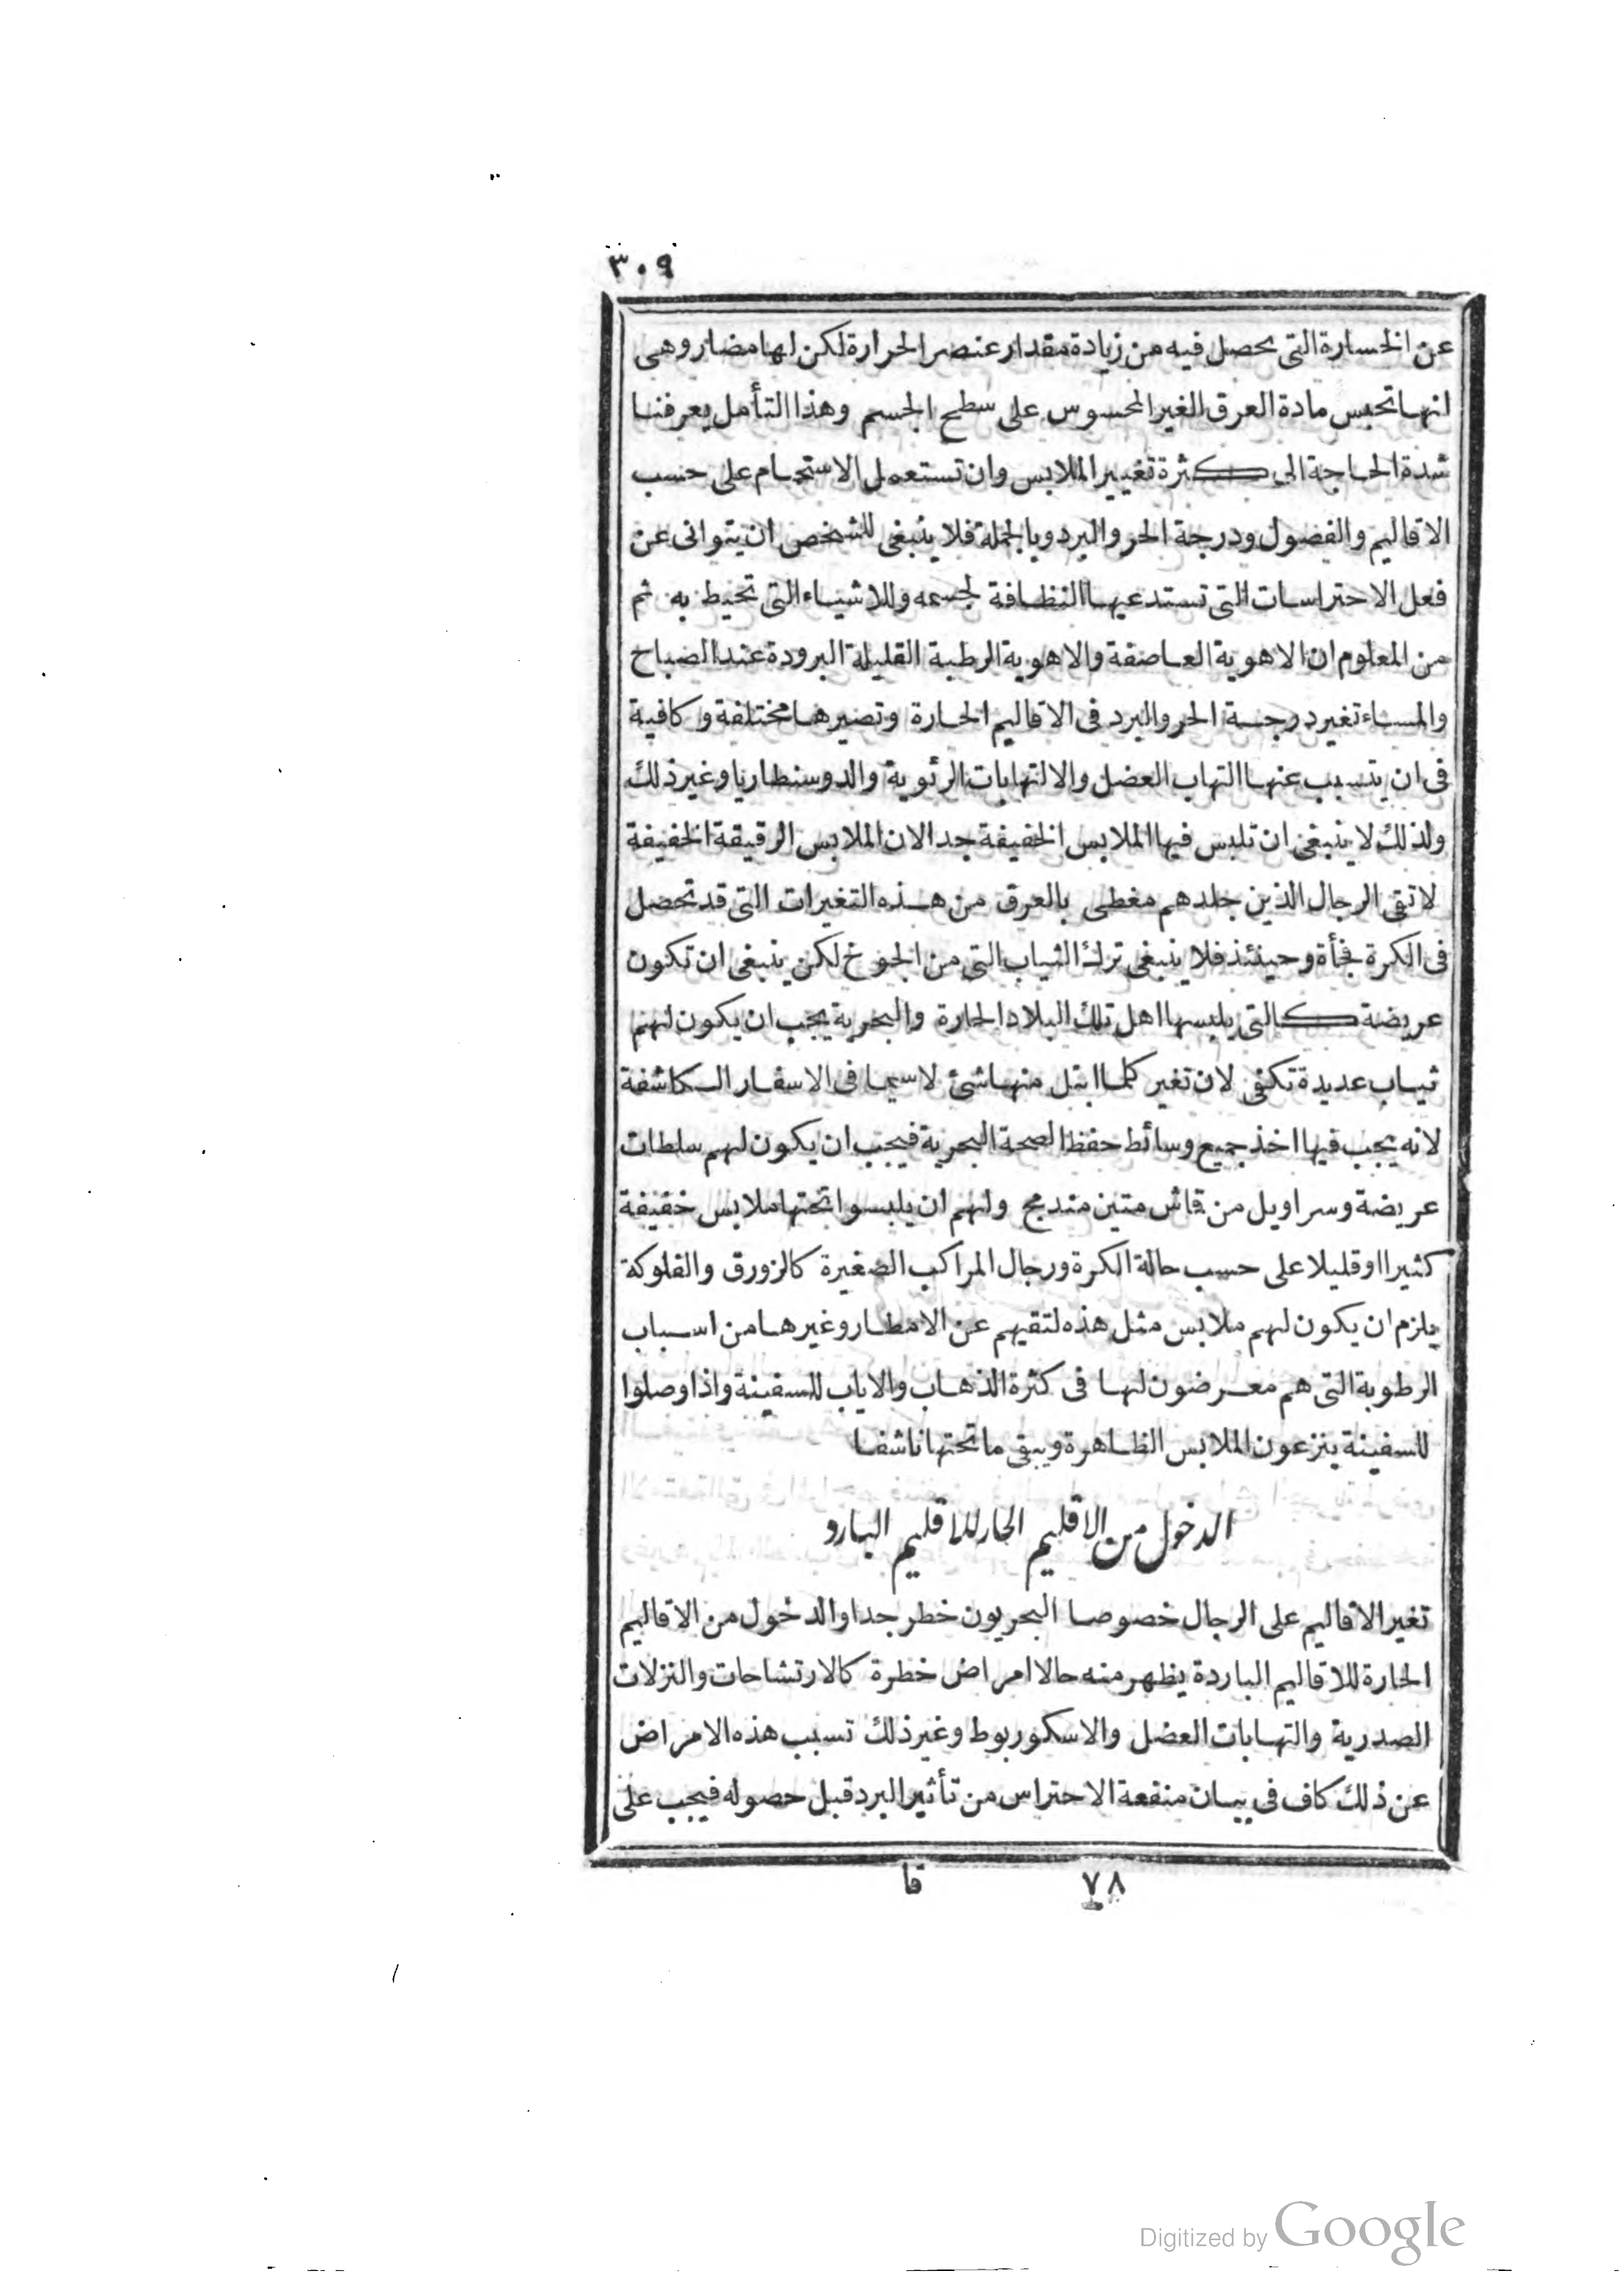 ٣٠٩
عن الخسارة التى يحصل فيه من زيادة مقدار عنصر الحرارة لكن لها مضار وهى
انها تحبس مادة العرق الغير المحسوس على سطح الجسم وهذا التأمل يعرفنا
شدة الحاجة الى كثرة تغيير الملابس وان تستعمل الاستحمام على حسب
الاقاليم والفصول ودرجة الحر والبرد وبالجملة فلا ينبغى للشخص ان يتوانى عن
فعل الاحتراسات التى تستدعيها النظافة لجسمه وللاشياء التى تحيط به ثم
من المعلوم ان الاهوية العاصفة والاهوية الرطبة القليلة البرودة عند الصباح
والمساء تغير درجة الحر والبرد فى الاقاليم الحارة وتصيرها مختلفة وكافية
فى ان يتسبب عنها التهاب العضل والالتهابات الرئوية والدوسنطاريا وغير ذلك
ولذلك لا ينبغى ان تلبس فيها الملابس الخفيفة جدا لان الملابس الرقيقة الخفيفة
لا تقى الرجال الذين جلدهم مغطى بالعرق من هذه التغيرات التى قد تحصل
فى الكرة فجأة وحينئذ فلا ينبغى ترك الثياب التى من الجوخ لكن ينبغى ان تكون
عريضة كالتى يلبسها اهل تلك البلاد الحارة والبحرية يجب ان يكون لهم
ثياب عديدة تكفى لان تغير كلما ابتل منها شئ لا سيما فى الاسفار الكاشفة
لانه يجب فيها اخذ جميع وسائط حفظ الصحة البحرية فيجب ان يكون لهم سلطات
عريضة وسراويل من قاش متين مندمج ولهم ان يلبسوا تحتها ملابس خفيفة
كثيرا او قليلا على حسب حالة الكرة ورجال المراكب الصغيرة كالزورق والفلوكة
يلزم ان يكون لهم ملابس مثل هذه لتقيهم عن الامطار وغيرها من اسباب
الرطوبة التى هم معرضون لها فى كثرة الذهاب والاياب للسفينة واذا وصلوا
للسفينة ينزعون الملابس الظاهرة ويبقى ما تحتها ناشفا
الدخول من الاقليم الحار للاقليم البارد
تغير الاقاليم على الرجال خصوصا البحريون خطر جدا والدخول من الاقاليم
الحارة للاقاليم الباردة يظهر منه حالا امراض خطرة كالارتشاحات والنزلات
الصدرية والتهابات العضل والاسكوربوط وغير ذلك تسبب هذه الامراض
عن ذلك كاف فى بيان منفعة الاحتراس من تأثير البرد قبل حصوله فيجب على
٧٨ قا
Digitized by Google